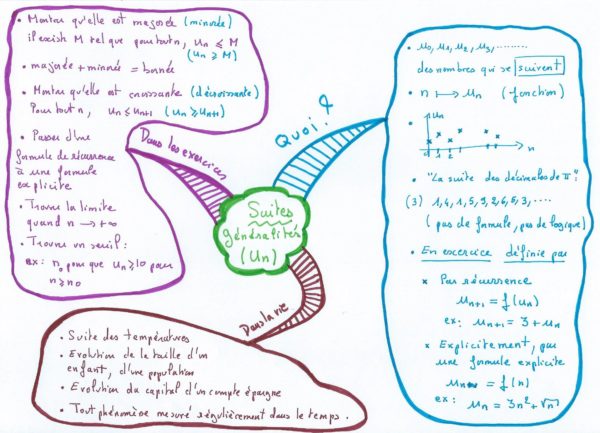 Suites
généralités
(Un)
Dans les exercices
• Montrer qu'elle est majorée (minorée)
il existe M tel que pour tout n, Un ≤ M
(Un ≥ M)
• majorée + minorée = bornée
• Montrer qu'elle est croissante (décroissante)
Pour tout n, Un ≤ Un+1 (Un ≥ Un+1)
• Passer d'une
formule de récurrence
à une formule
explicite
• Trouver la limite
quand n → +∞
• Trouver un seuil :
ex: n₀ pour que Un ≥ 10 pour
n ≥ n₀
Quoi ?
• u₀, u₁, u₂, u₃, ........
des nombres qui se suivent
• n ↦ un (fonction)
• un
0 1 2 n
• "La suite des décimales de π" :
(3) 1, 4, 1, 5, 9, 2, 6, 5, 3, ....
(pas de formule, pas de logique)
• En exercice définie par
× Par récurrence
un+1 = f(un)
ex: un+1 = 3 + un
× Explicitement, par
une formule explicite
un = f(n)
ex: un = 3n² + √n
Dans la vie
• Suite des températures
• Evolution de la taille d'un
enfant, d'une population
• Evolution du capital d'un compte épargne
• Tout phénomène mesuré régulièrement dans le temps.